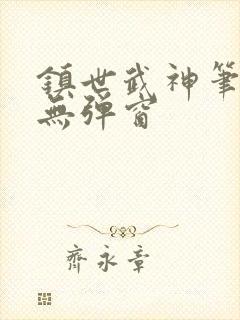 鎮世武神筆
無彈窗
齊永章